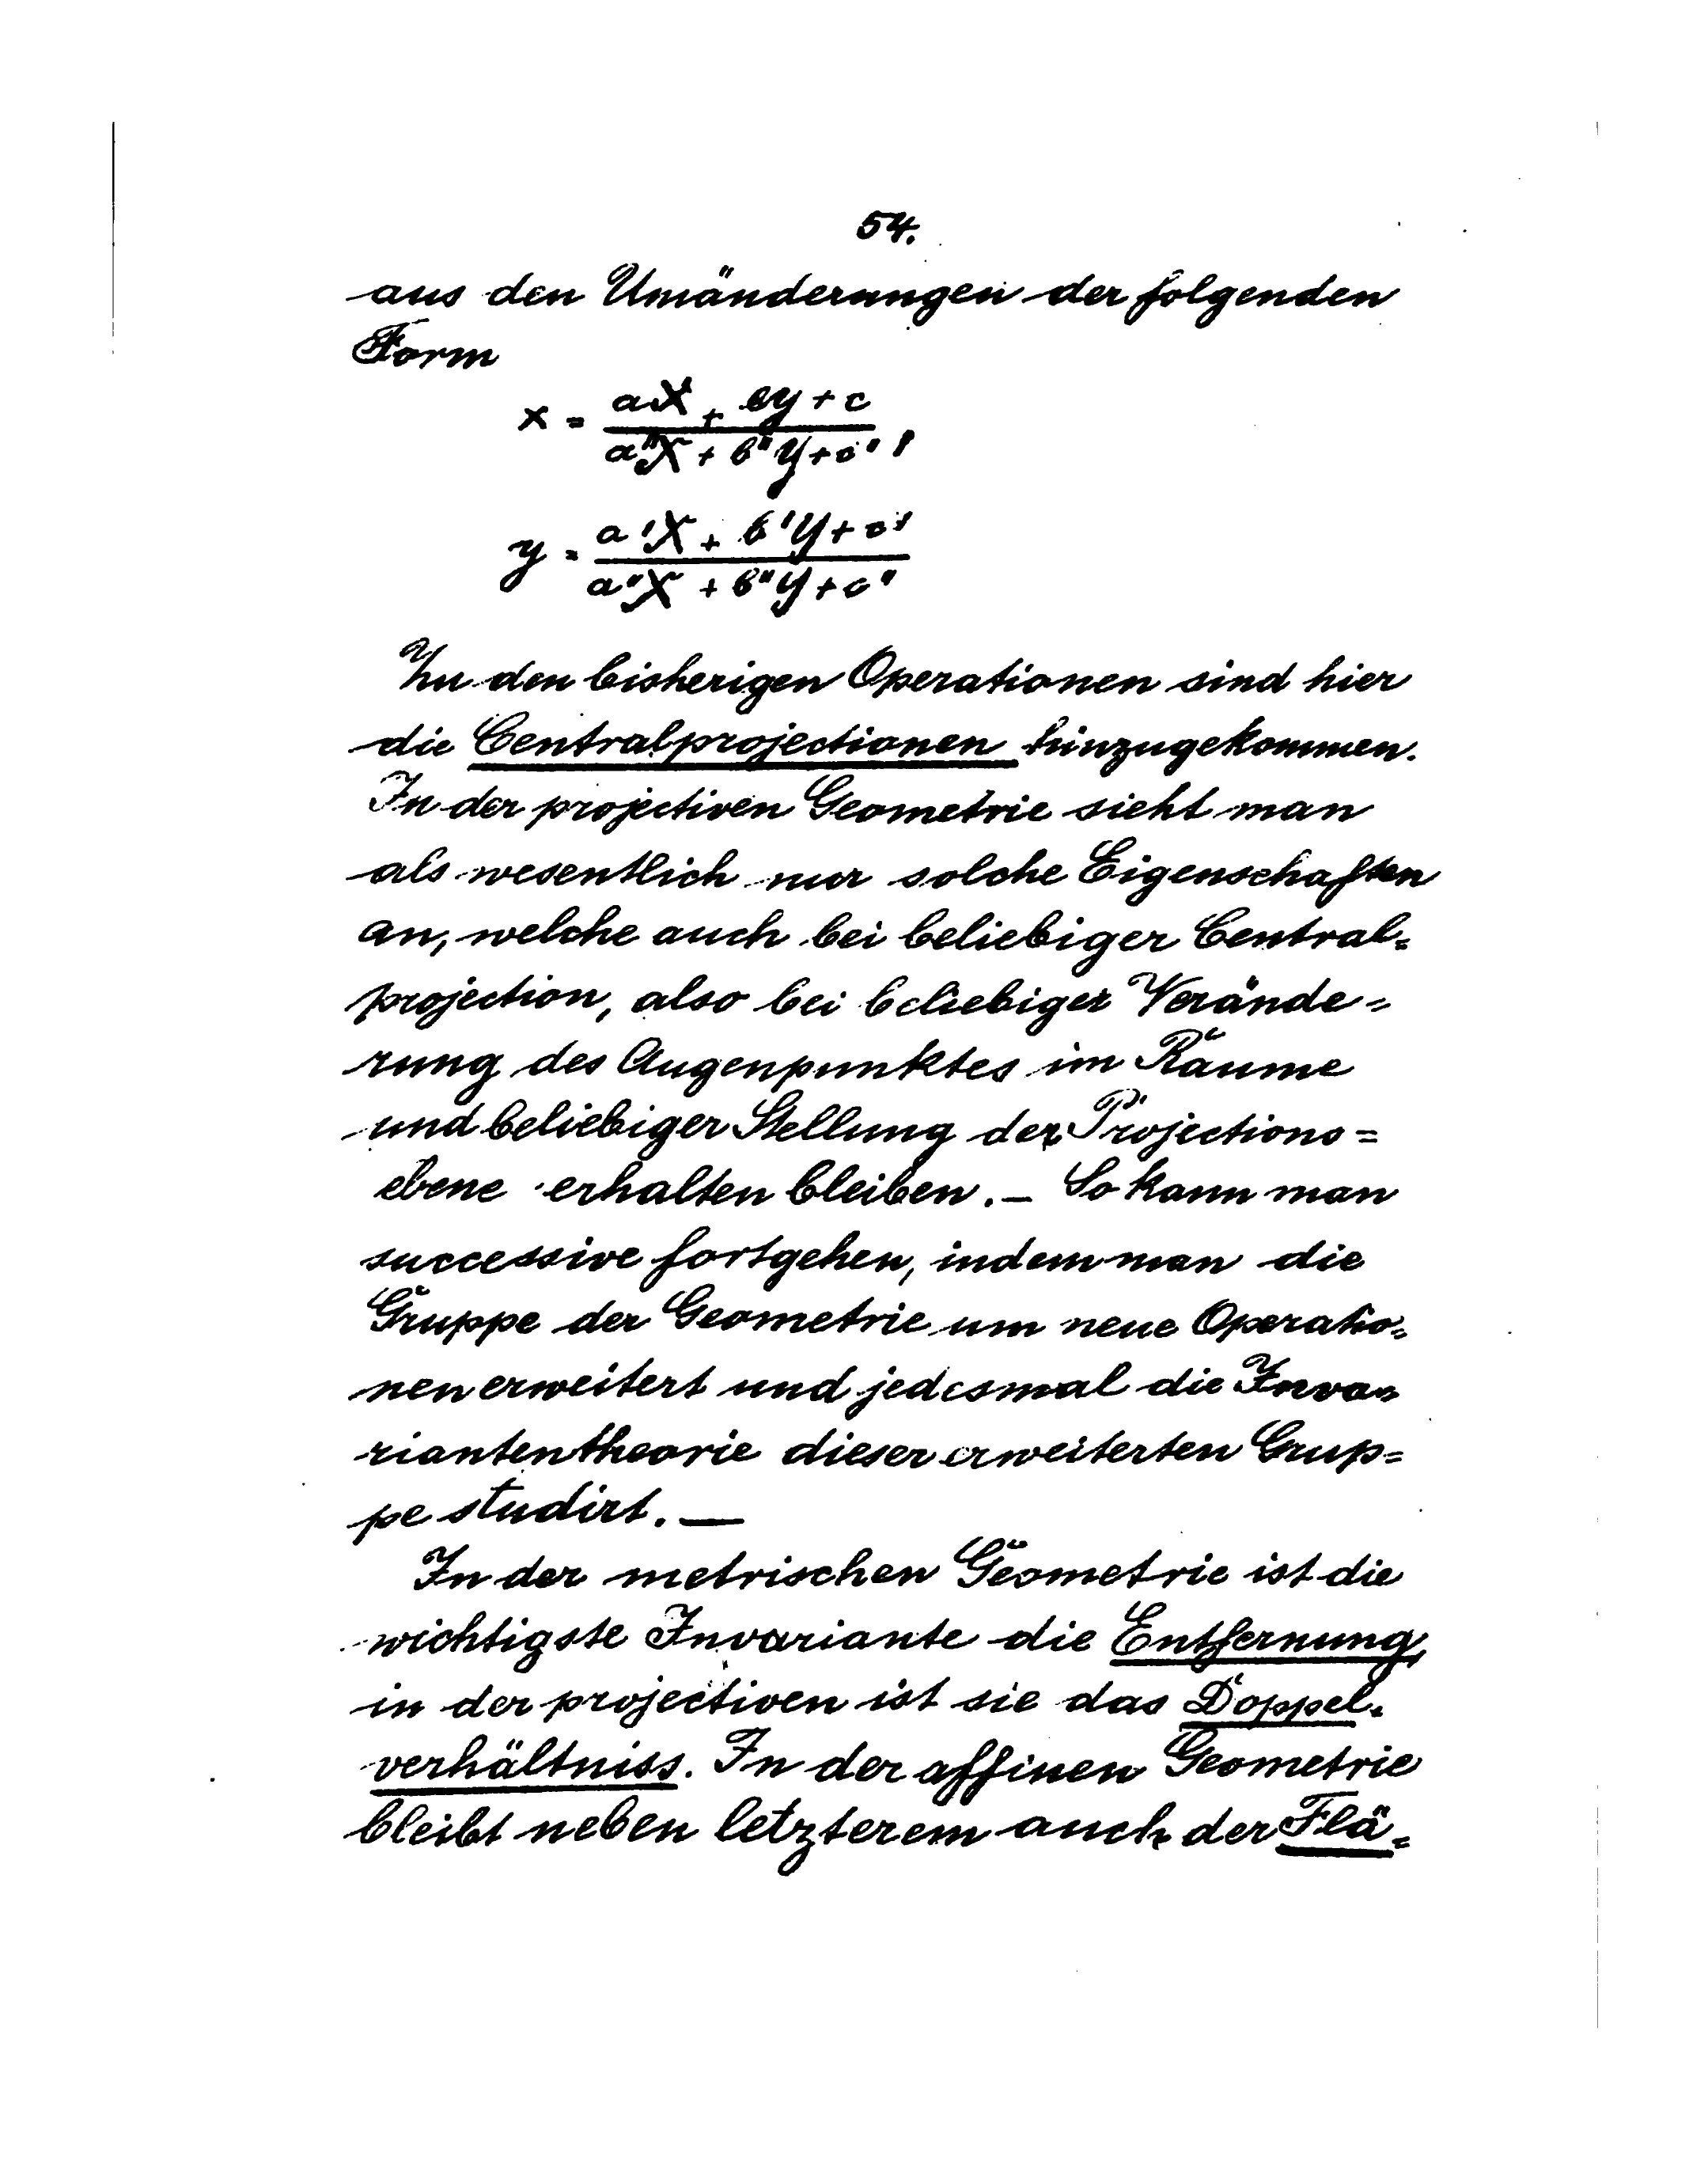 54.
aus den Umänderungen der folgenden
Form
x = (aX + bY + c) / (a''X + b''Y + c''),
y = (a'X + b'Y + c') / (a''X + b''Y + c'')
Zu den bisherigen Operationen sind hier
die Centralprojectionen hinzugekommen.
In der projectiven Geometrie sieht man
als wesentlich nur solche Eigenschaften
an, welche auch bei beliebiger Central=
projection, also bei beliebiger Verände=
rung des Augenpunktes im Raume
und beliebiger Stellung der Projections=
ebene erhalten bleiben. – So kann man
successive fortgehen, indem man die
Gruppe der Geometrie um neue Operatio=
nen erweitert und jedesmal die Inva=
riantentheorie dieser erweiterten Grup=
pe studirt. —
In der metrischen Geometrie ist die
wichtigste Invariante die Entfernung,
in der projectiven ist sie das Doppel=
verhältniss. In der affinen Geometrie
bleibt neben letzterem auch der Flä=